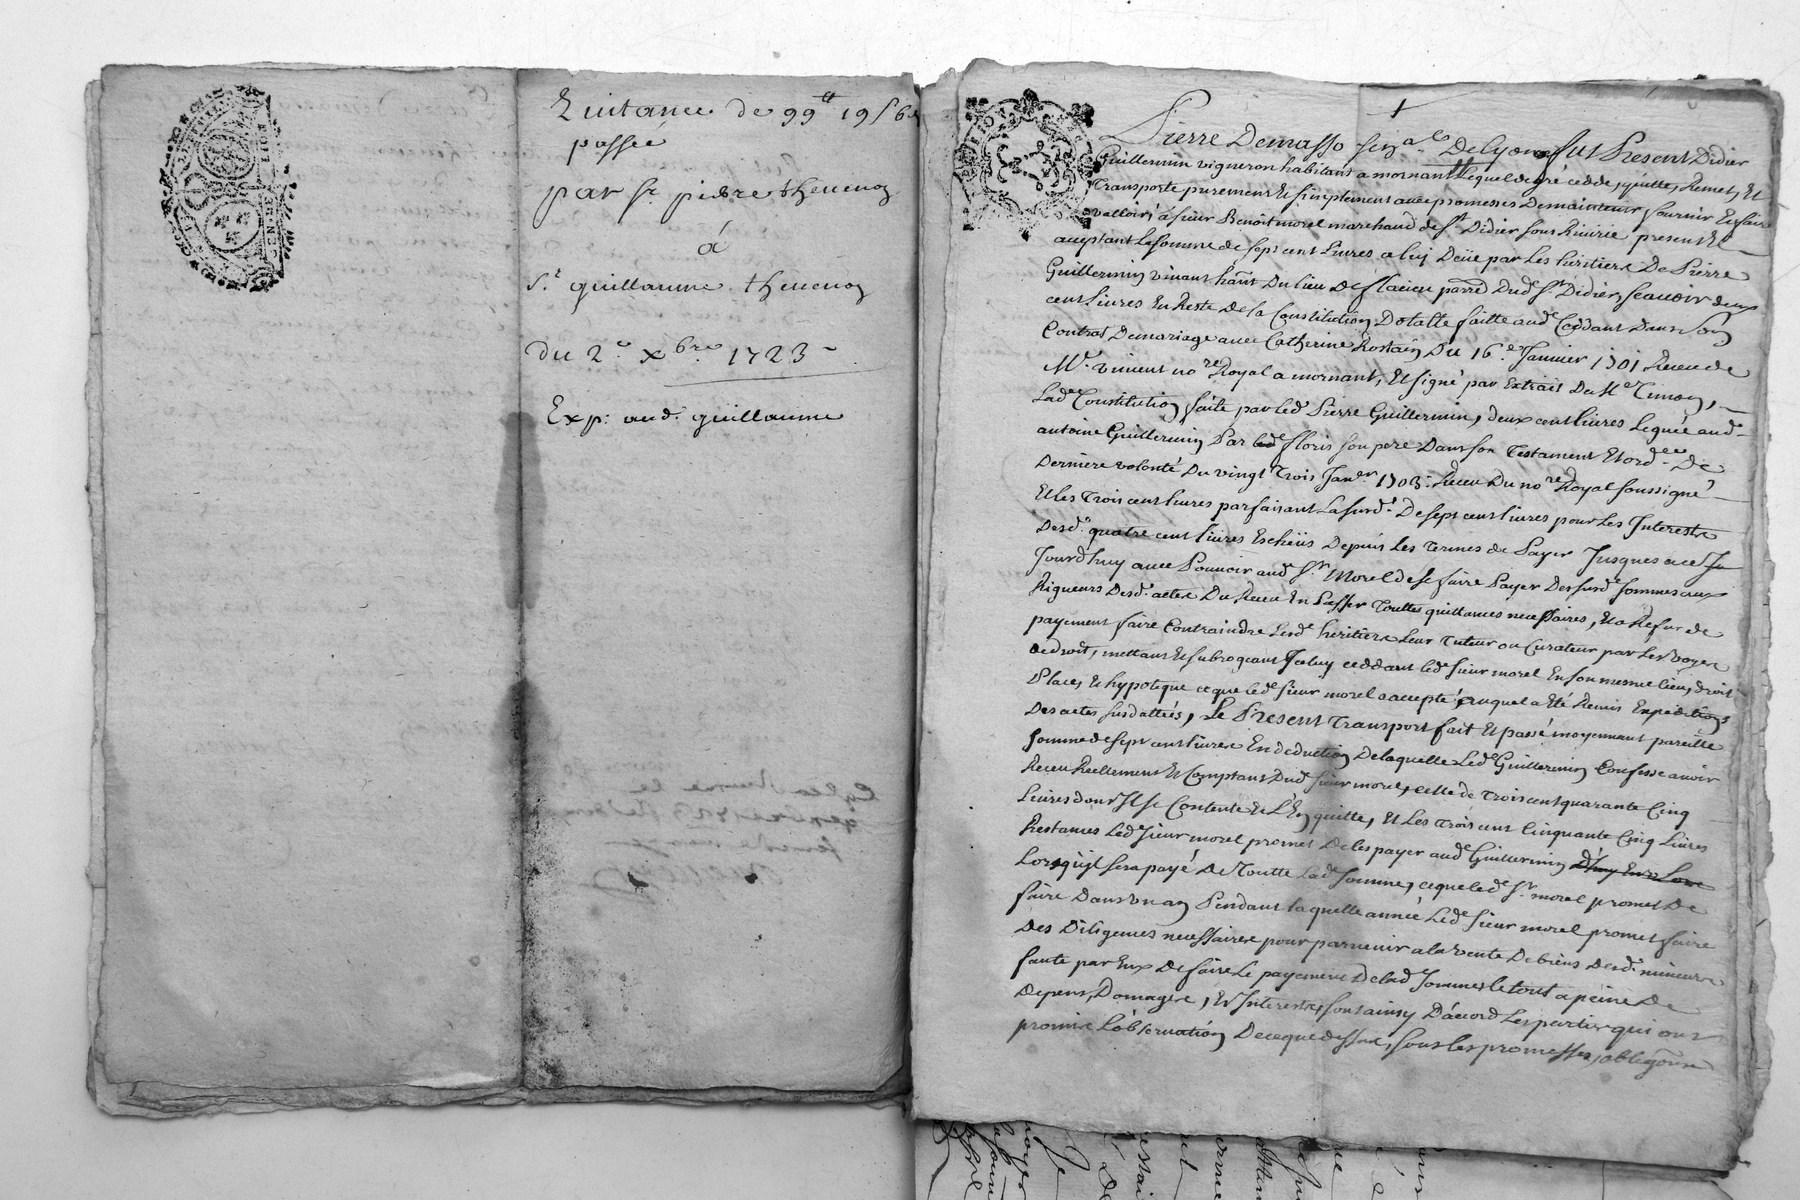 Quittance de 99ᵗᵗ 19ˢ 6
passée
par Sʳ pierre thevenon
à
Sʳ guillaume thevenon
du 2ᵉ xbre 1723
Exp: aud. guillaume
Pierre Demasso senᵃˡ De Lyon fut Present Didier
Guillermin vigneron habitant a mornant Lequel de gré cedde, quitte, Remet, Et
Transporte purement Et simplement avec promesses De maintenir fournir Et faire
valloir a sieur Benoit morel marchand de Sᵗ Didier sous Riverie present Et
aceptant La somme de sept cent Livres a luy Deüe par Les heritiers De Pierre
Guillermin vivant habᵗ Du lieu De parrᵉ Dudᵗ Sᵗ Didier, scavoir deux
cent Livres En Reste De la Constitution Dotalle faitte audᵗ Ceddant Dans son
Contrat De mariage avec Catherine Rostain Du 16ᵉ Janvier 1701 Receu de
Mᵉ vincent noʳᵉ Royal a mornant, Et signé par Extrait Du Mᵉ Timon,
Ladᵉ Constitution faite par ledᵗ Pierre Guillermin, deux cent livres Leguée audᵗ
antoine Guillermin Par ledᵗ floris son pere Dans son Testament Et ordᶜᵉ De
Derniere volonté Du vingt Trois Janᵉʳ 1703 Receu Du noʳᵉ Royal soussigné
Et les Trois cent livres parfaisant La susdᵉ De sept cent livres pour Les Interests
Desdᵗˢ quatre cent livres Escheüs Depuis Les Termes de Payer Jusques a ce Ju
Jourdhuy avec Pouvoir audᵗ Sʳ Morel de se faire Payer Des susdᵉˢ sommes aux
Rigueurs Desdᵗˢ actes Du Receu En Passer Touttes quittances necessaires, Et a Refus de
payement faire Contraindre Lesdᵗˢ heritiers Leur Tuteur ou Curateur par Les voyes
de droit, mettant Et subrogeant Iceluy ceddant ledᵗ sieur morel En son mesme lieu, droit
Place, Et hypoteque ce que ledᵗ sieur morel a accepté, auquel a Eté Remis Expeditions
Des actes susdattés, Le Present Transport fait Et passé moyennant pareille
somme de sept cent livres En deduction De laquelle Ledᵗ Guillermin Confesse avoir
Receu Reellement Et Comptant Dudᵗ sieur morel, celle de Trois cent quarante Cinq
Livres dont Il se Contente Et L'En quitte, Et Les Trois cent Cinquante Cinq Livres
Restantes Ledᵗ sieur morel promet De les payer audᵗ Guillermin
Lorsqu'il sera payé De Toutte Ladᵉ somme, ce que ledᵗ Sʳ morel promet De
faire Dans un an Pendant laquelle année Ledᵗ sieur morel promet faire
Des Diligences necessaires pour parvenir a la vente De biens Desdᵗˢ mineurs
faute par Eux De faire Le payement De ladᵉ somme, le tout a peine De
Depens, Domages, Et Interests, sont ainsy D'acord Les parties qui ont
promis L'observation De ce que dessus, sous les promesses, obligõns